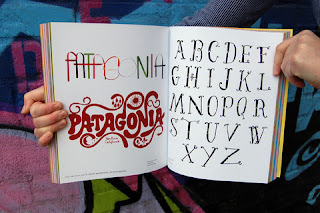 PATAGONIA
PATAGONIA
ABCDEF
GHIJKL
MNOPQR
STUVW
XYZ